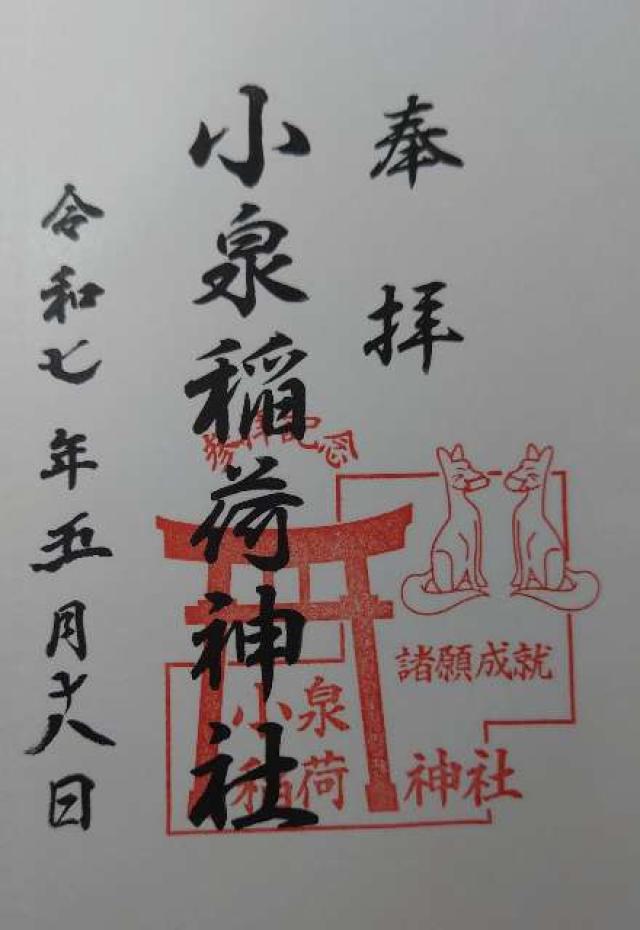 奉拝
小泉稲荷神社
令和七年五月十八日
参拝記念
諸願成就
小泉
稲荷神社